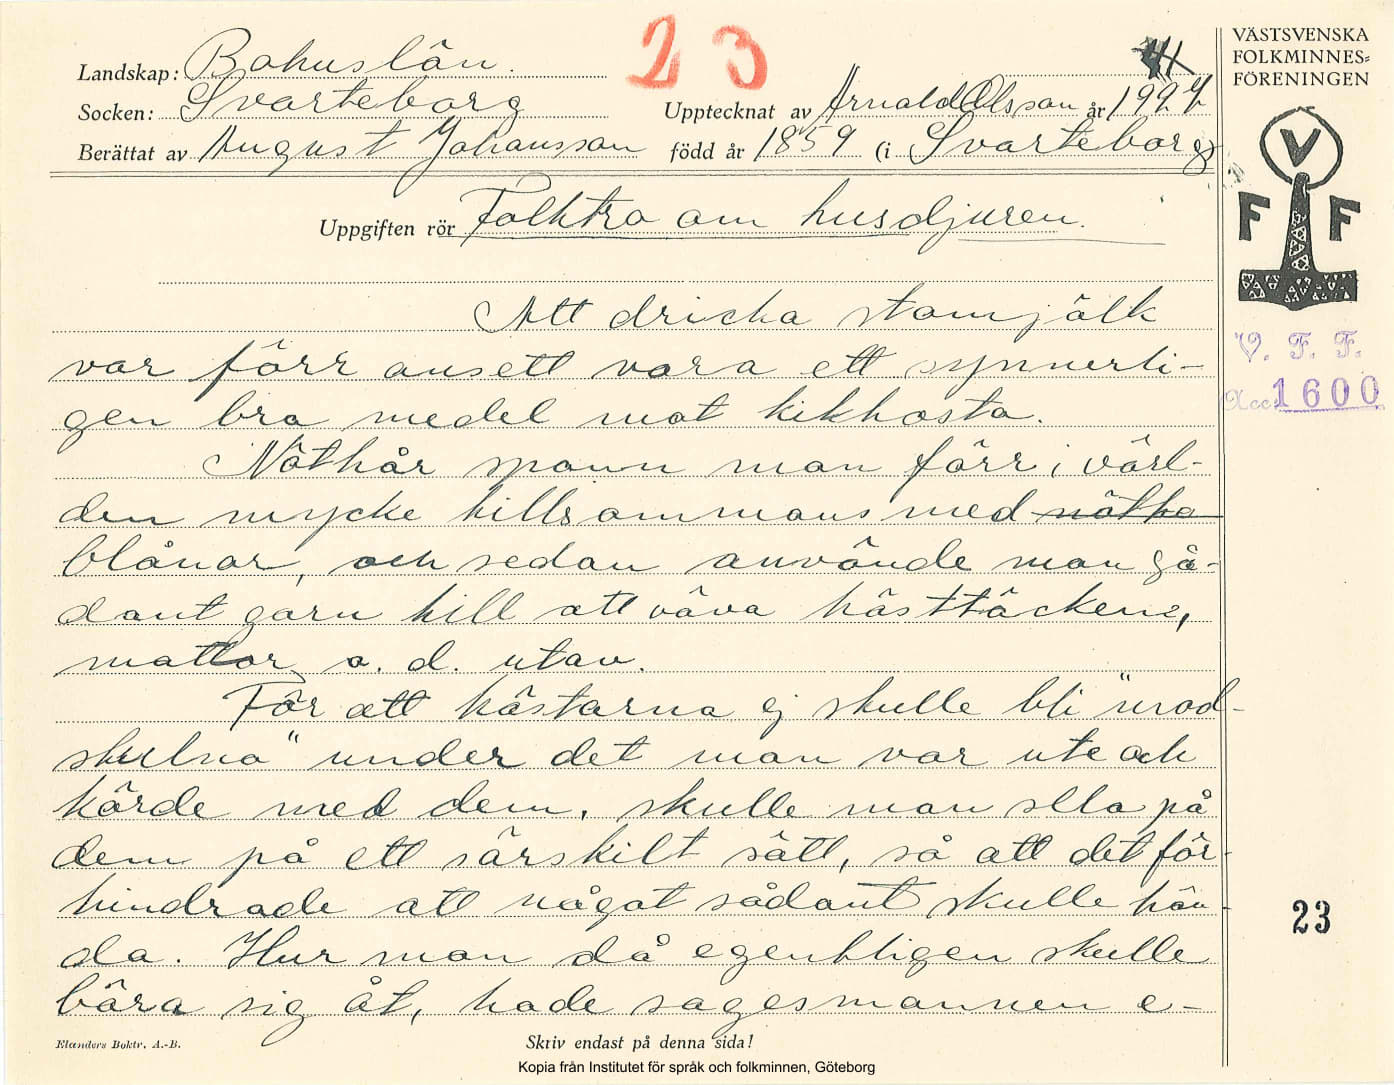 23
VÄSTSVENSKA
FOLKMINNES=
FÖRENINGEN
Landskap: Bohuslän.
Socken: Svarteborg Upptecknat av Arnold Olsson år 1927
Berättat av August Johansson född år 1859 (i Svarteborg
Uppgiften rör Folktro om husdjuren.
V
F F
Att dricka stomjölk
var förr ansett vara ett synnerli-
gen bra medel mot kikhosta.
Nöthår spann man förr i värl-
den mycke tillsammans med nötha
blånar, och sedan använde man så-
dant garn till att väva hästtäcken,
mattor o. d. utav.
För att hästarna ej skulle bli "mod-
skulna" under det man var ute och
körde med dem, skulle man sela på
dem på ett särskilt sätt, så att det för-
hindrade att något sådant skulle hän-
da. Hur man då egentligen skulle
bära sig åt, hade sagesmannen e-
V. F. F.
Acc 1600
23
Elanders Boktr. A.-B.
Skriv endast på denna sida!
Kopia från Institutet för språk och folkminnen, Göteborg